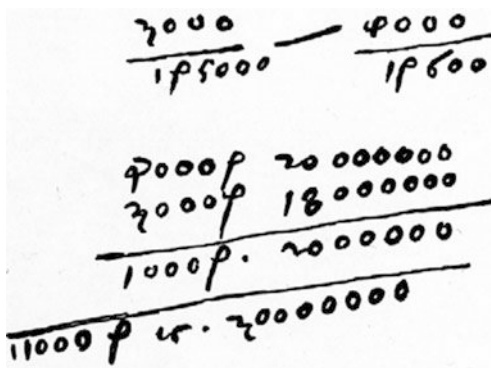 3000 — 4000
1ρ 5000 1ρ 600
4000ρ 20000000
3000ρ 18000000
1000ρ. 2000000
11000 ρ . 30000000